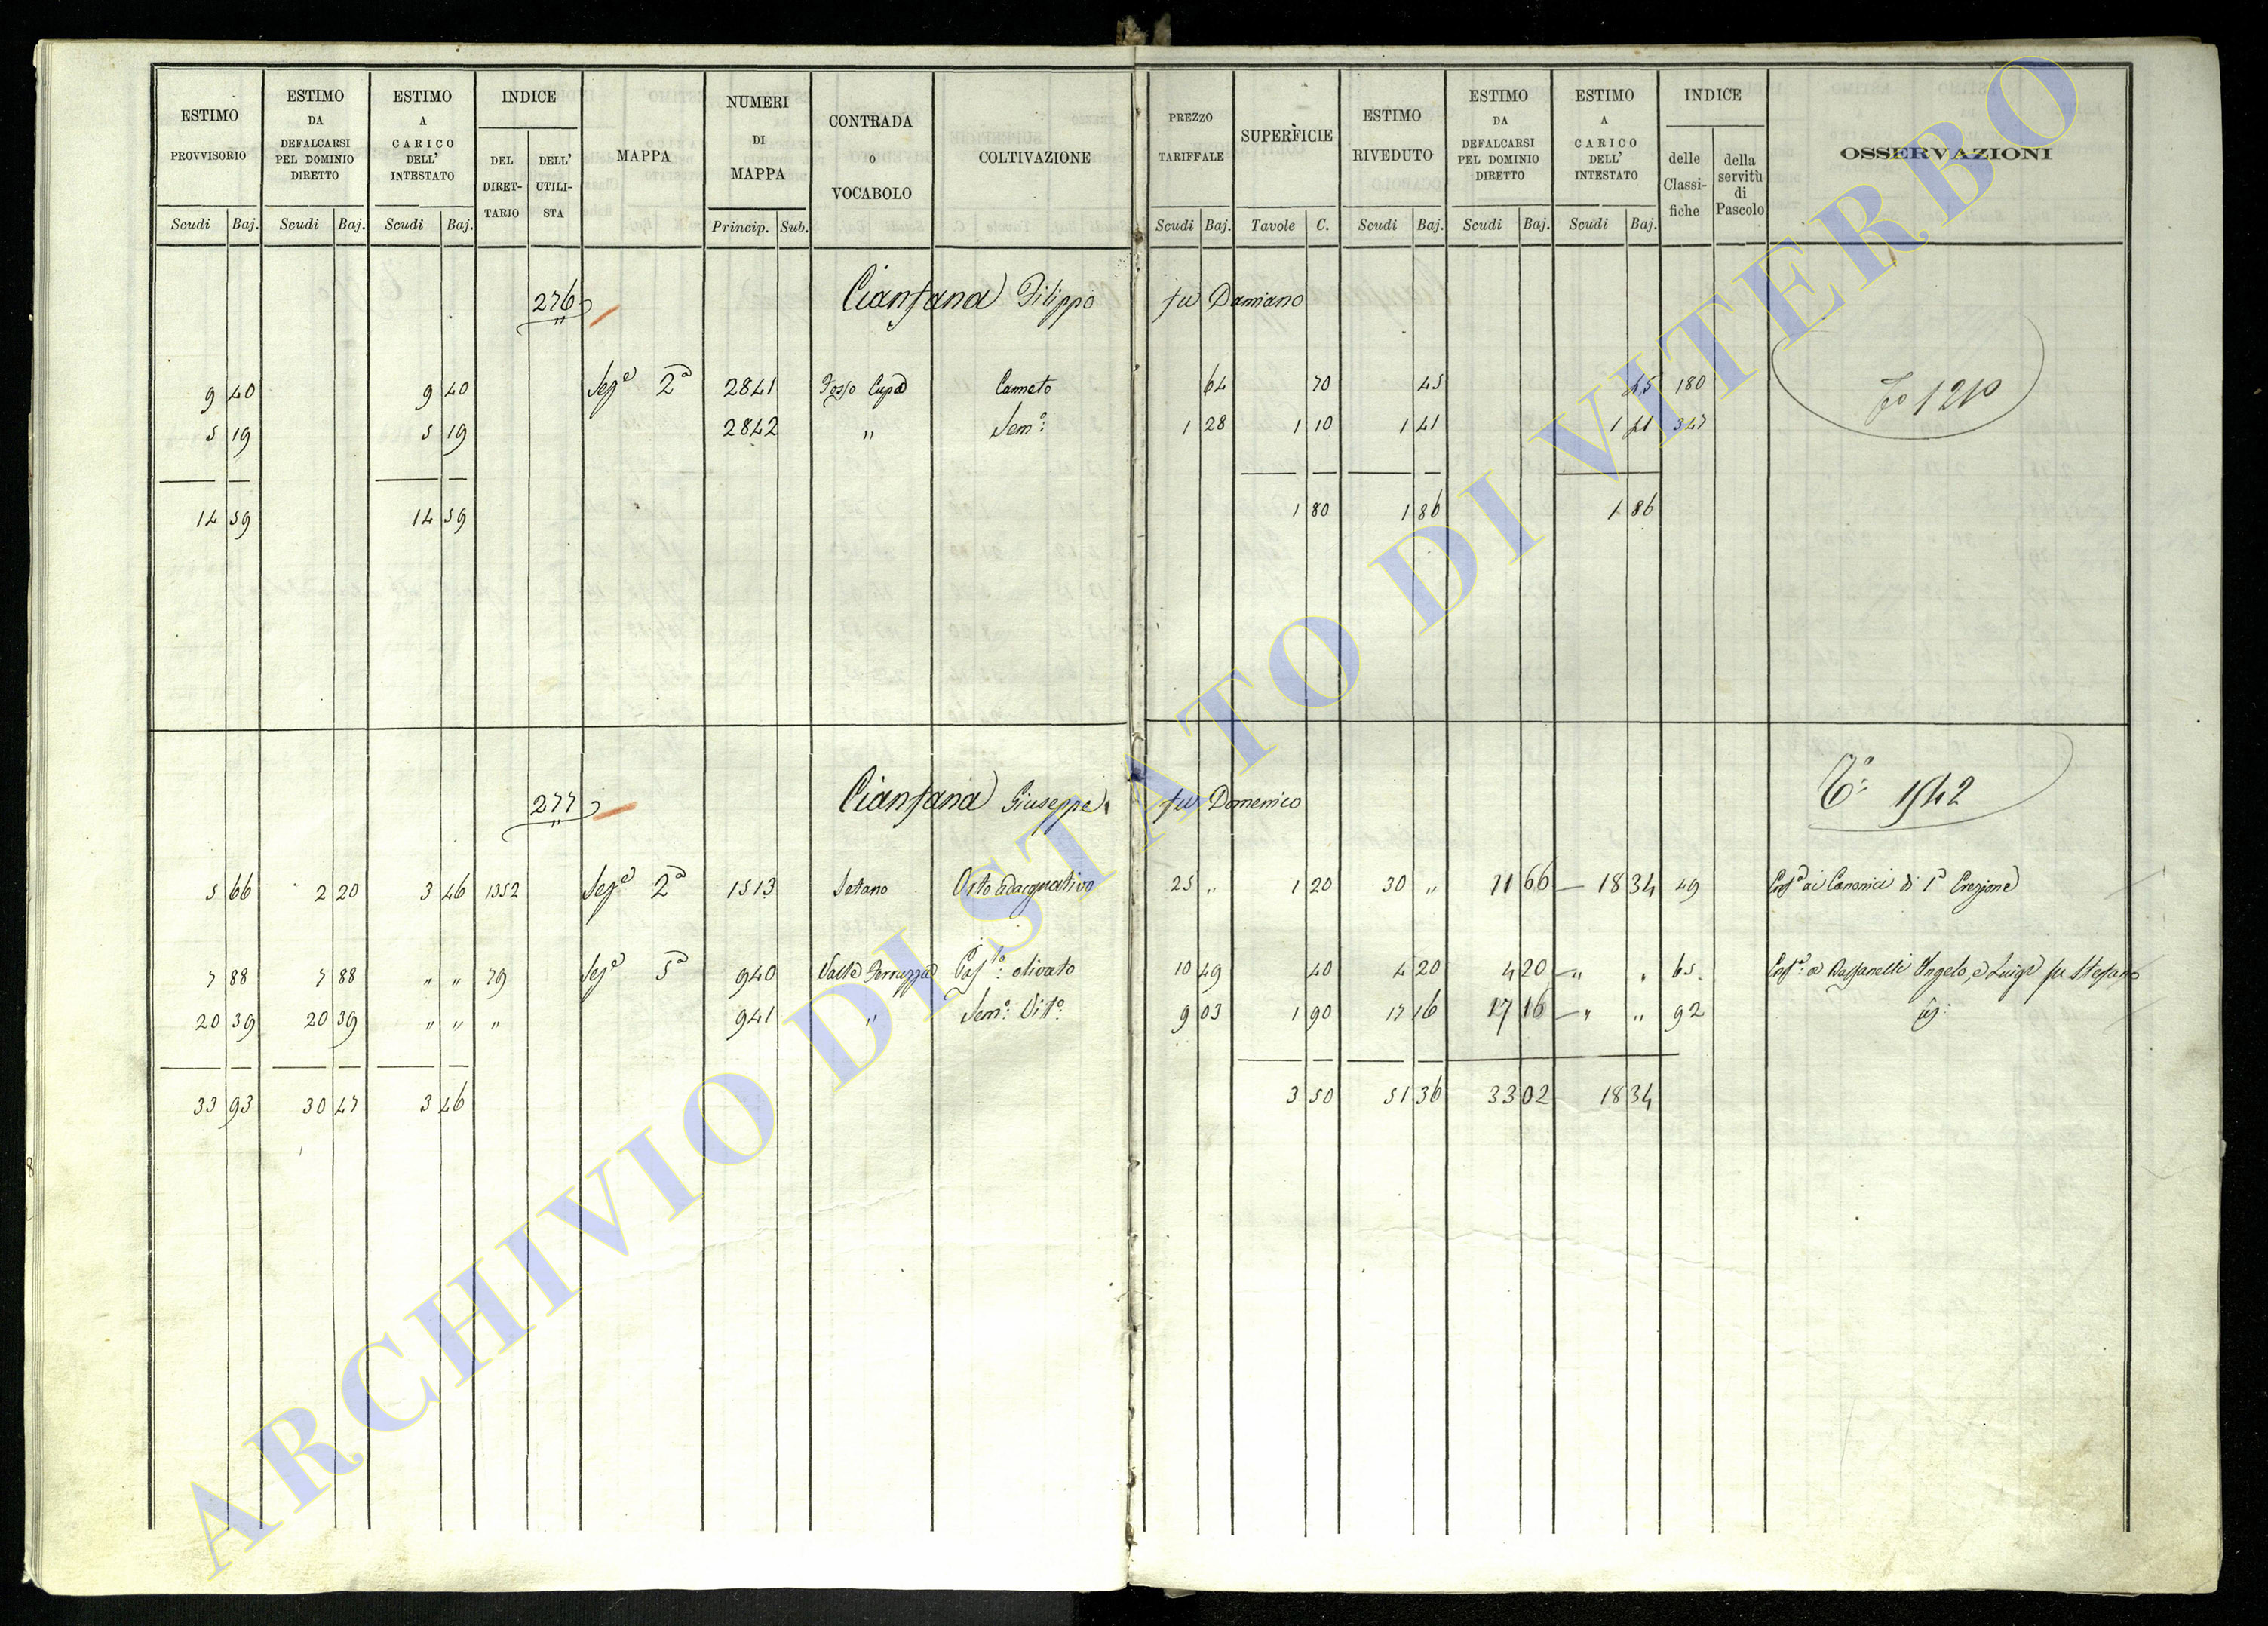 ESTIMO PROVVISORIO | ESTIMO DA DEFALCARSI PEL DOMINIO DIRETTO | ESTIMO A CARICO DELL' INTESTATO | INDICE DEL DIRET-TARIO | DELL' UTILI-STA | MAPPA | NUMERI DI MAPPA | CONTRADA o VOCABOLO | COLTIVAZIONE | PREZZO TARIFFALE | SUPERFICIE | ESTIMO RIVEDUTO | ESTIMO DA DEFALCARSI PEL DOMINIO DIRETTO | ESTIMO A CARICO DELL' INTESTATO | INDICE delle Classi-fiche | della servitù di Pascolo | OSSERVAZIONI
Scudi Baj. Scudi Baj. Scudi Baj. Princip. Sub. Scudi Baj. Tavole C. Scudi Baj. Scudi Baj. Scudi Baj.
276 Cianfana Filippo fu Damiano
9 40 9 40 Sezᵉ 2ᵃ 2841 Fosso Cupo Canneto 64 70 45 45 180
5 19 5 19 2842 " Semᵒ: 1 28 1 10 1 41 1 41 347
14 59 14 59 1 80 1 86 1 86
277 Cianfana Giuseppe fu Domenico
1942
5 66 2 20 3 46 1352 Sezᵉ 2ᵃ 1513 Setano Orto adacquativo 25 " 1 20 30 " 11 66 — 18 34 49 ai Canonici di 1ᵃ Erezione
7 88 7 88 " " 79 Sezᵉ 5ᵃ 940 Valle olivato 10 49 40 4 20 4 20 — " " 65 Angelo, e Luigi fu Stefano
20 39 20 39 " " " 941 " Semᵒ: Vitᵒ: 9 03 1 90 17 16 17 16 — " " 92
33 93 30 47 3 46 3 50 51 36 33 02 18 34
ARCHIVIO DI STATO DI VITERBO